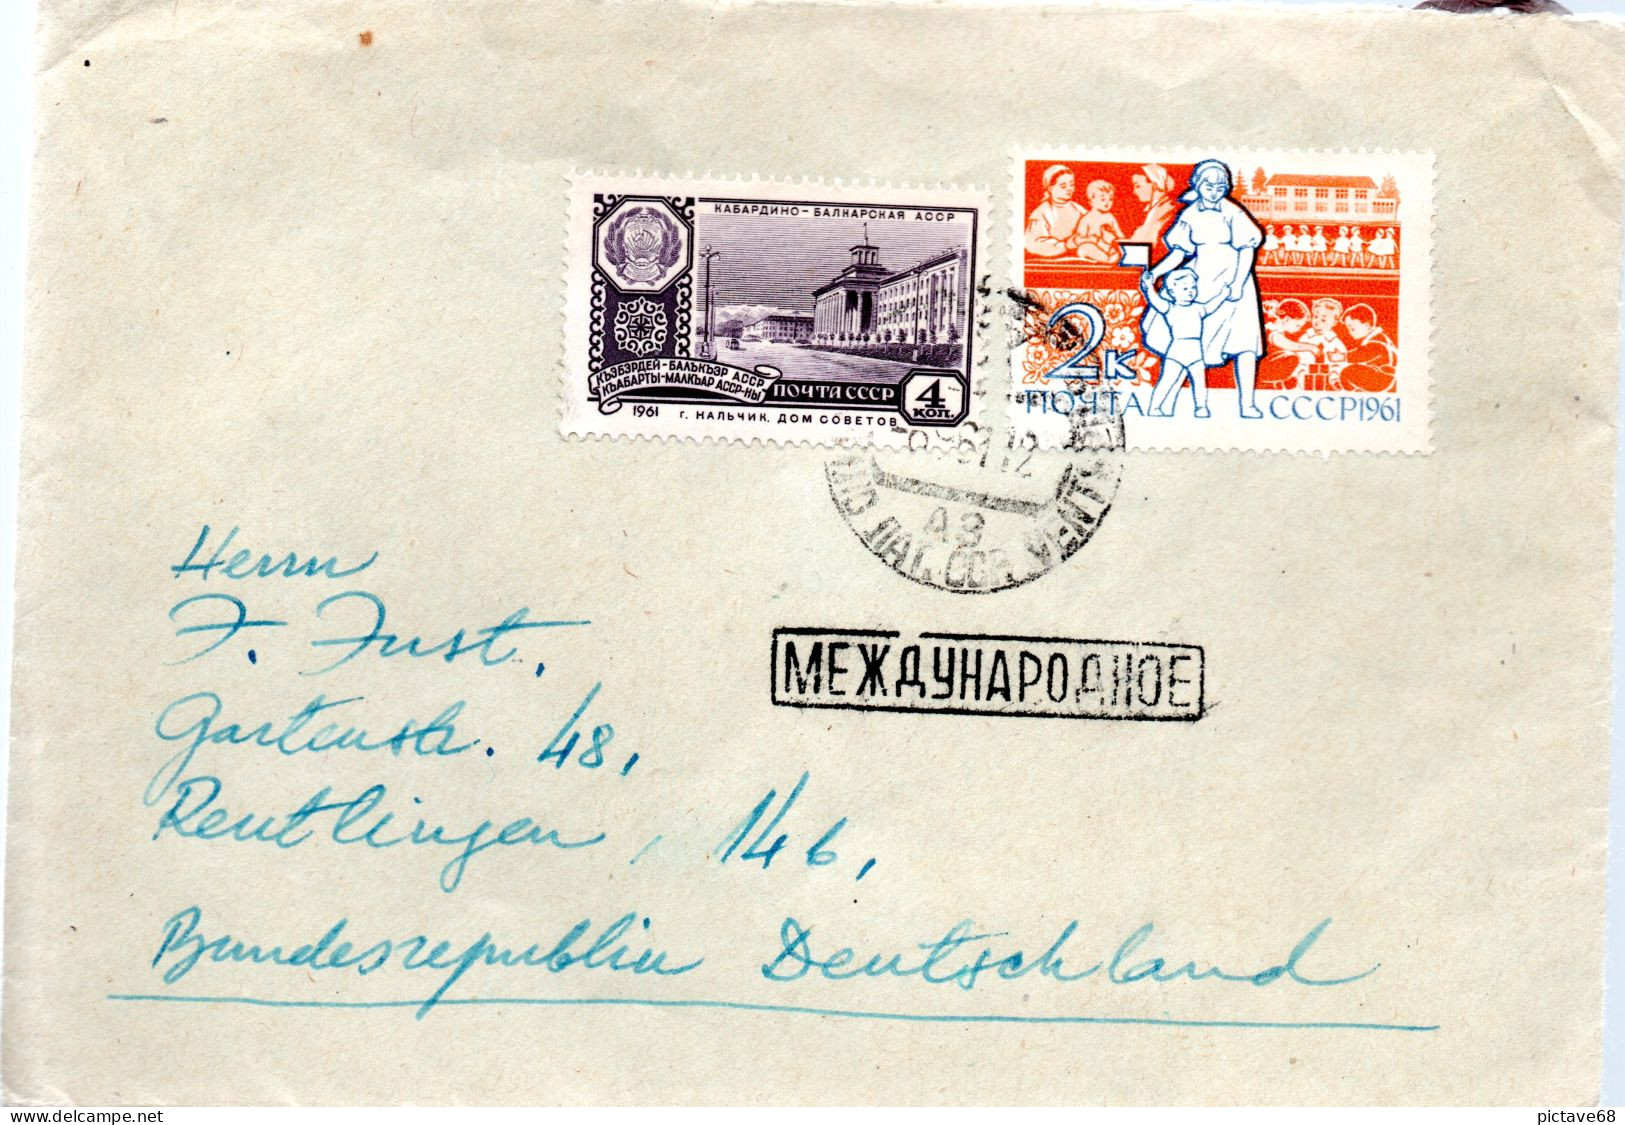 КАБАРДИНО-БАЛКАРСКАЯ АССР
КЪЭБЭРДЕЙ-БАЛЪКЪЭР АССР
КЪАБАРТЫ-МАЛКЪАР АССР-НЫ
ПОЧТА СССР
4
КОП.
1961 Г. НАЛЬЧИК. ДОМ СОВЕТОВ
2к
ПОЧТА СССР 1961
А3
VENT
МЕЖДУНАРОДНОЕ
Herrn
J. Just.
Gartenstr. 48,
Reutlingen, 146,
Bundesrepublik Deutschland
www.delcampe.net
pictave68